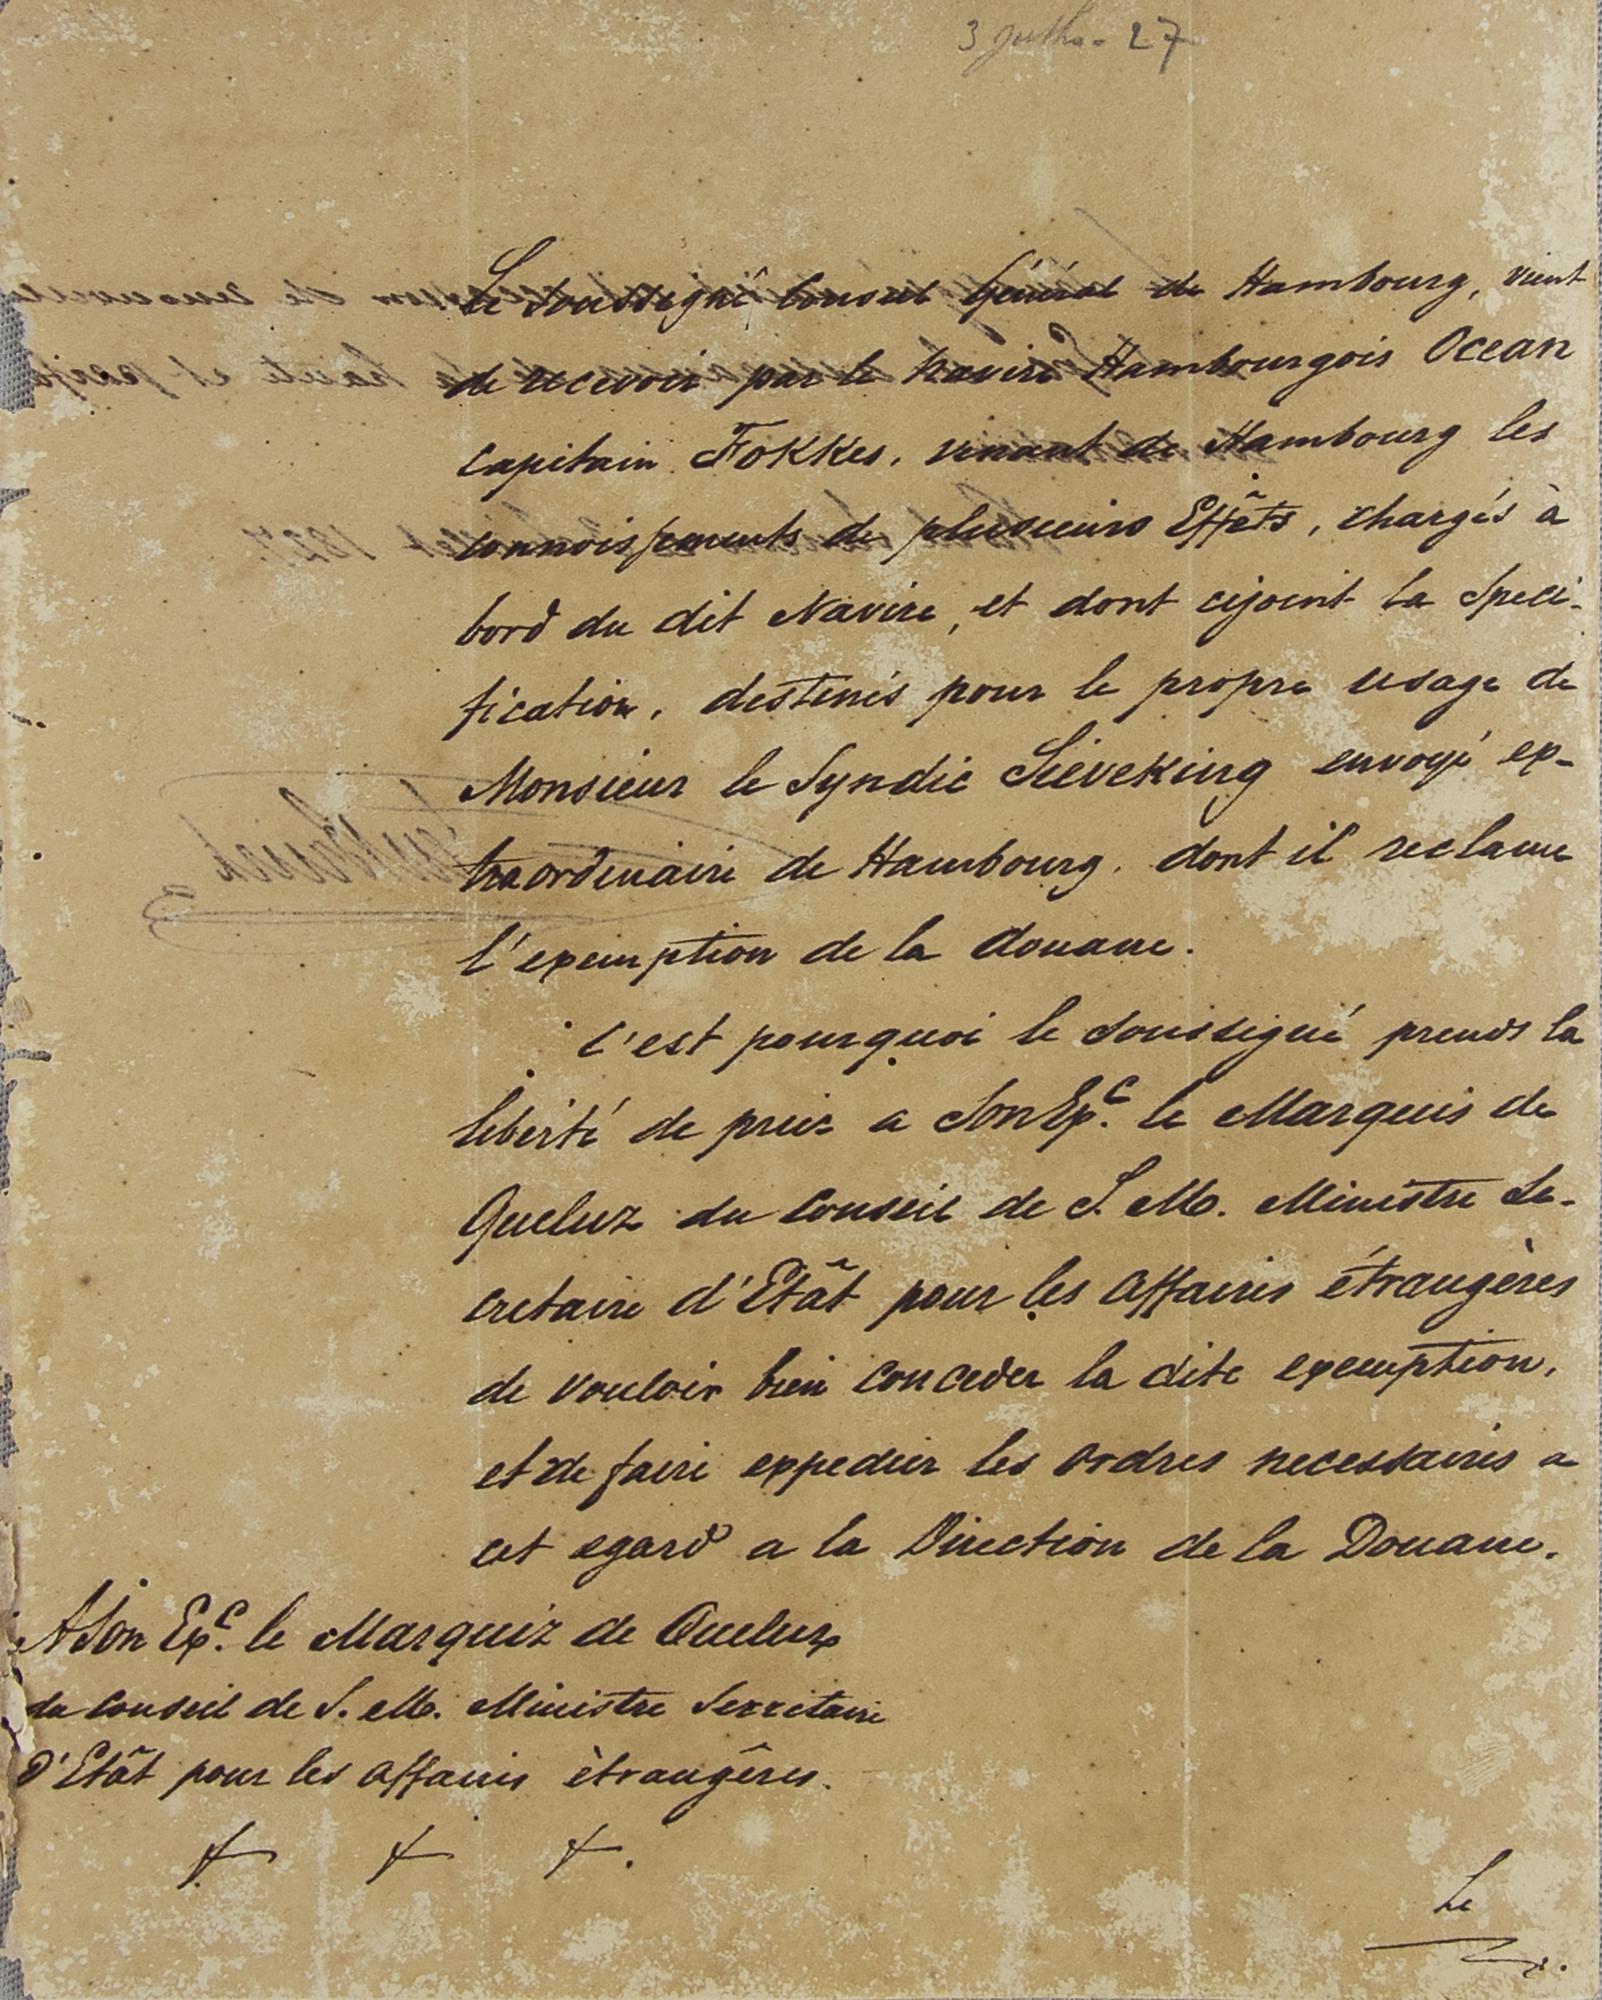 3 Julho - 27
Le soussigné Consul Général de Hambourg, vient
de recevoir par le Navire Hambourgois Ocean
Capitain Fokkes, venant de Hambourg les
connoissements de plusieurs Effêts, chargés à
bord du dit Navire, et dont cijoint la Speci-
fication, destinés pour le propre usage de
Monsieur le Syndic Sieveking envoyé ex-
traordinaire de Hambourg. dont il reclame
l'exemption de la douane.
C'est pourquoi le soussigné prends la
liberté de prier a Son Exc. le Marquis de
Queluz du Conseil de S. M. Ministre Se-
cretaire d'Etât pour les Affaires étrangères
de vouloir bien conceder la dite exemption,
et de faire expedier les Ordres necessaires a
cet egard a la Direction de la Douane.
A Son Exc. le Marquiz de Queluz
du Conseil de S. M. Ministre Secretaire
d'Etât pour les Affaires ètrangêres.
Le